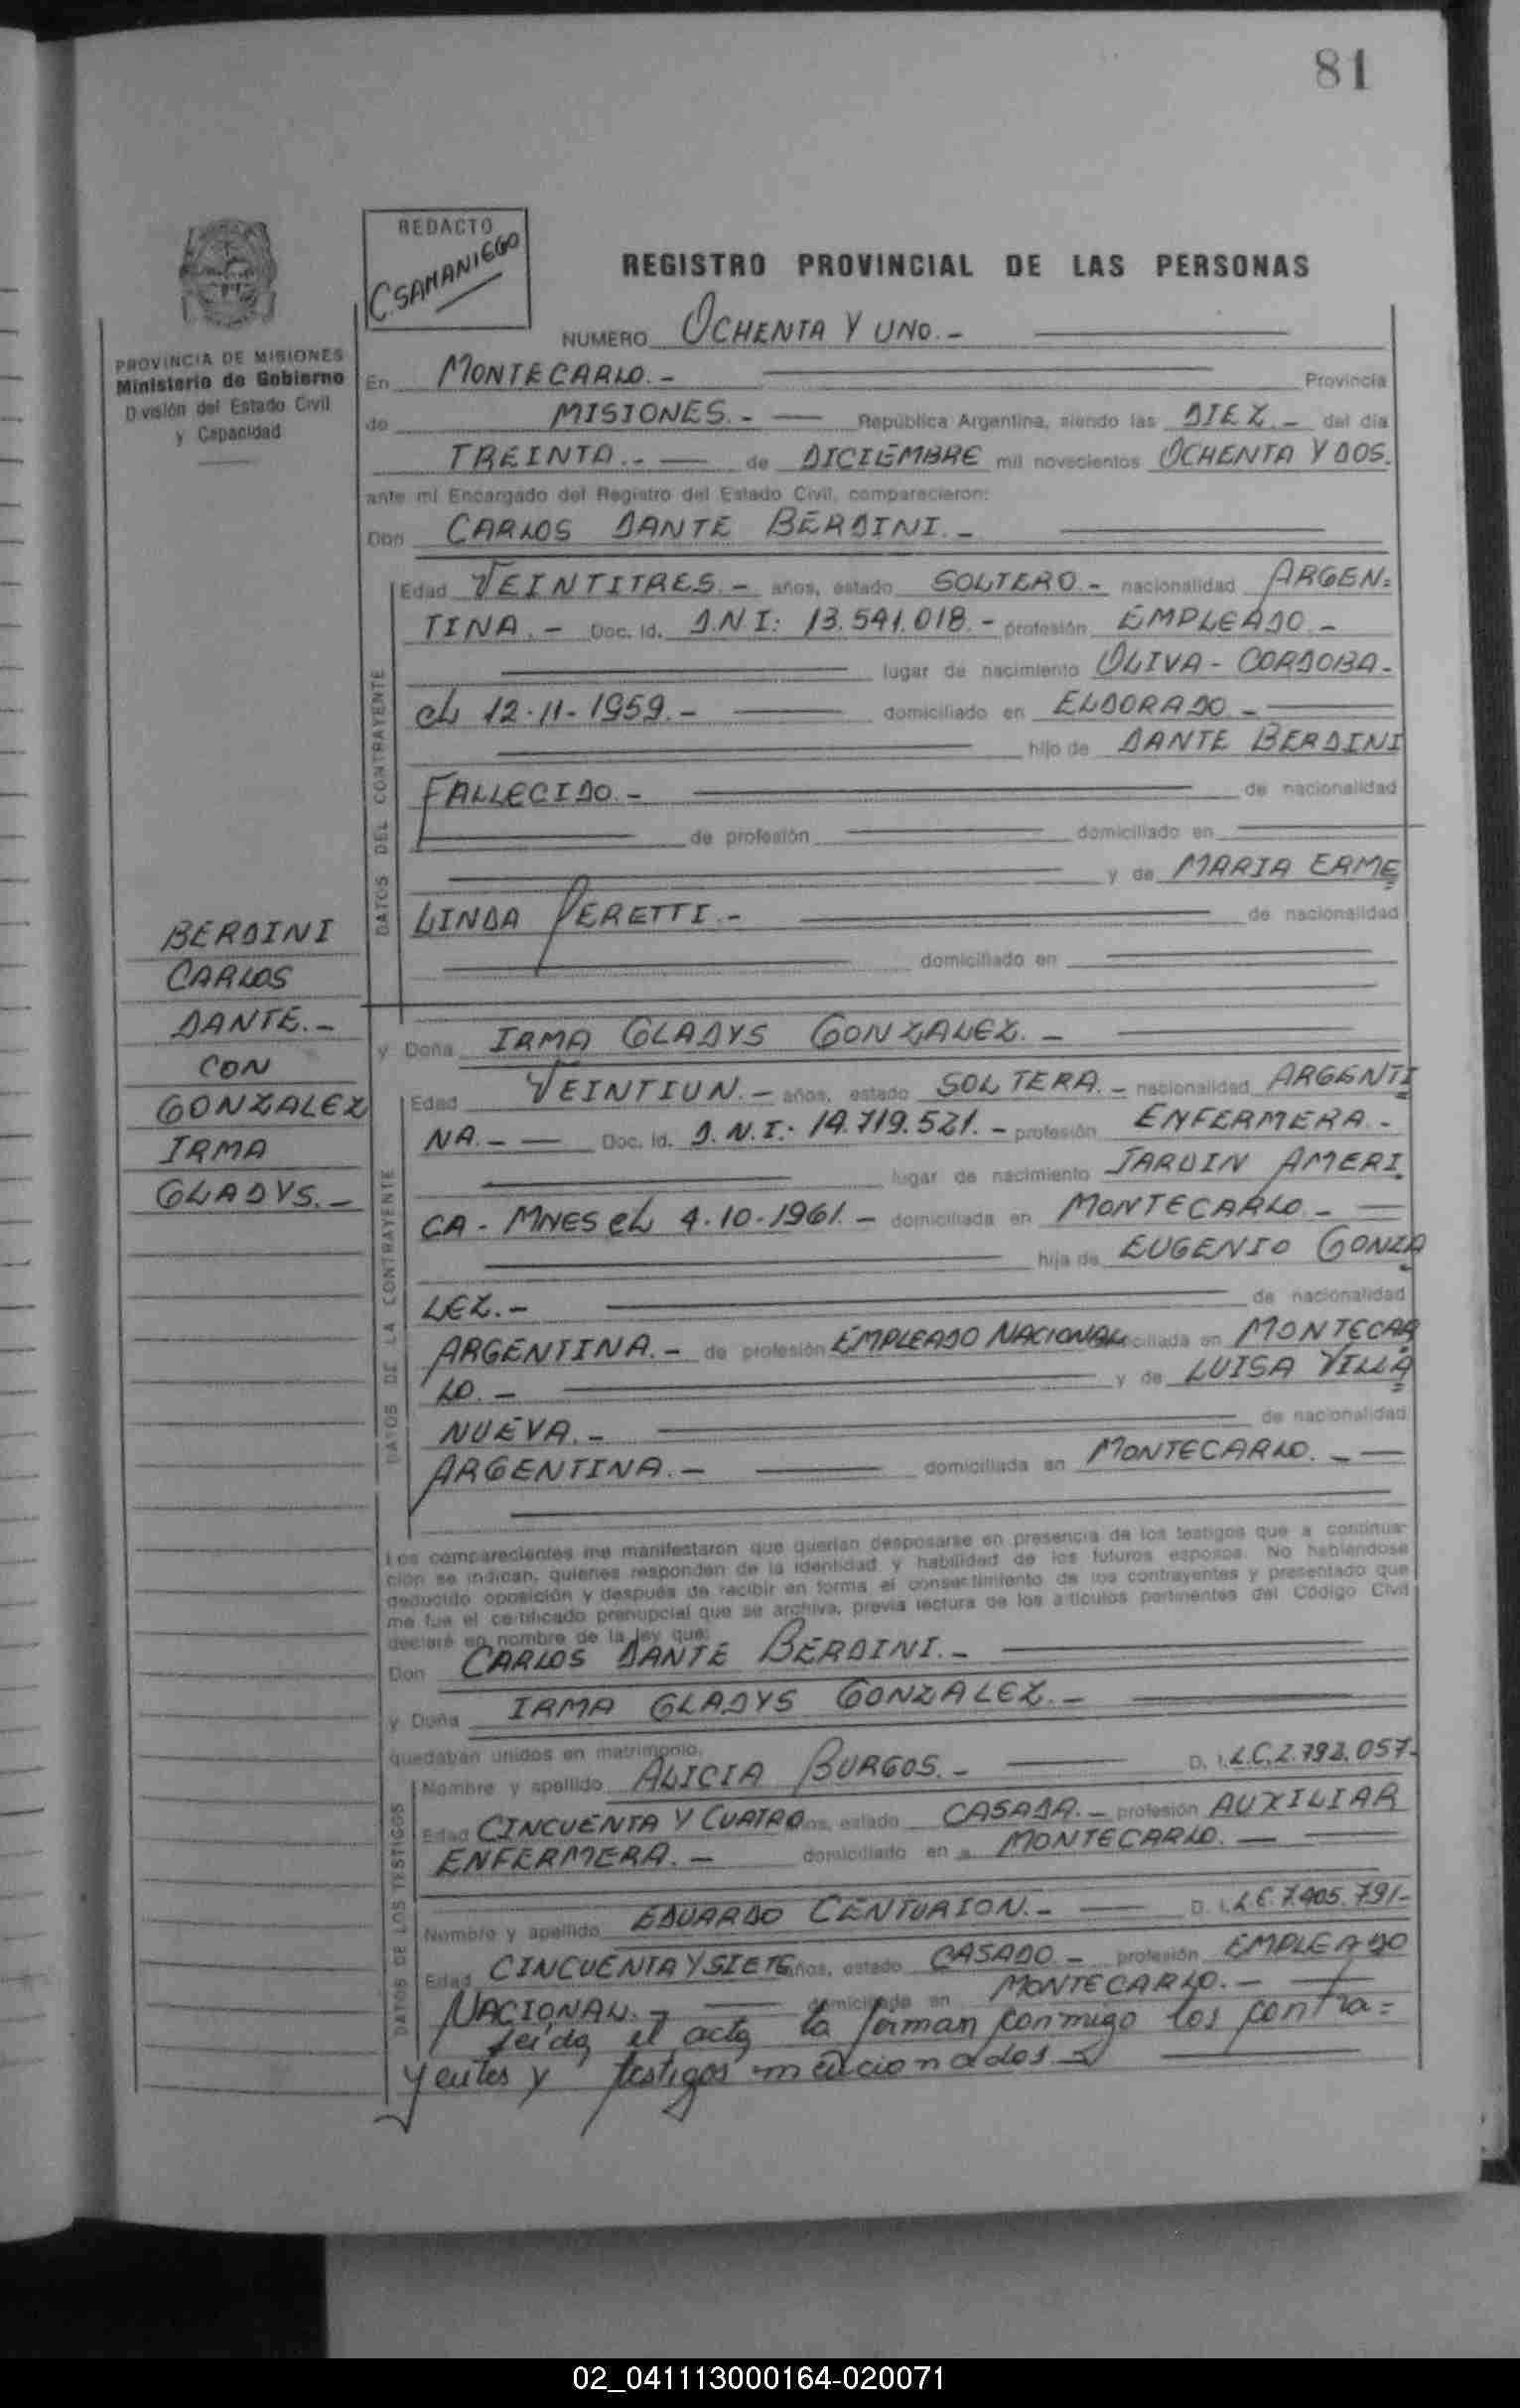 81
REDACTO
C. SAMANIEGO
REGISTRO PROVINCIAL DE LAS PERSONAS
NUMERO OCHENTA Y UNO.-
PROVINCIA DE MISIONES
Ministerio de Gobierno
División del Estado Civil
y Capacidad
En MONTECARLO.- Provincia
de MISIONES.- República Argentina, siendo las DIEZ.- del día
TREINTA.- de DICIEMBRE mil novecientos OCHENTA Y DOS.
ante mí Encargado del Registro del Estado Civil, comparecieron:
Don CARLOS DANTE BERDINI.-
DATOS DEL CONTRAYENTE
Edad VEINTITRES.- años, estado SOLTERO.- nacionalidad ARGEN=
TINA.- Doc. Id. D.N.I: 13.541.018.- profesión EMPLEADO.-
lugar de nacimiento OLIVA - CORDOBA-
el 12-11-1959.- domiciliado en ELDORADO.-
hijo de DANTE BERDINI
FALLECIDO.- de nacionalidad
de profesión domiciliado en
y de MARIA ERME
LINDA PERETTI.- de nacionalidad
domiciliado en
BERDINI
CARLOS
DANTE.-
CON
GONZALEZ
IRMA
GLADYS.-
y Doña IRMA GLADYS GONZALEZ.-
DATOS DE LA CONTRAYENTE
Edad VEINTIUN.- años, estado SOLTERA.- nacionalidad ARGENTI
NA.- Doc. Id. D.N.I.: 14.719.521.- profesión ENFERMERA.-
lugar de nacimiento JARDIN AMERI
CA - MNES el 4-10-1961.- domiciliada en MONTECARLO.-
hija de EUGENIO GONZA
LEZ.- de nacionalidad
ARGENTINA.- de profesión EMPLEADO NACIONAL domiciliada en MONTECAR
LO.- y de LUISA VILLA
NUEVA.- de nacionalidad
ARGENTINA.- domiciliada en MONTECARLO.-
Los comparecientes me manifestaron que querían desposarse en presencia de los testigos que a continua-
ción se indican, quienes responden de la identidad y habilidad de los futuros esposos. No habiéndose
deducido oposición y después de recibir en forma el consentimiento de los contrayentes y presentado que
me fue el certificado prenupcial que se archiva, previa lectura de los artículos pertinentes del Código Civil
declaré en nombre de la ley que:
Don CARLOS DANTE BERDINI.-
y Doña IRMA GLADYS GONZALEZ.-
quedaban unidos en matrimonio.
DATOS DE LOS TESTIGOS
Nombre y apellido ALICIA BURGOS.- D. I. L.C. 2.792.057-
Edad CINCUENTA Y CUATRO años, estado CASADA.- profesión AUXILIAR
ENFERMERA.- domiciliado en MONTECARLO.-
Nombre y apellido EDUARDO CENTURION.- D. I. L.E. 7.405.791-
Edad CINCUENTA Y SIETE años, estado CASADO.- profesión EMPLEADO
NACIONAL.- domiciliado en MONTECARLO.-
Leída el acta la firman conmigo los contra=
yentes y testigos mencionados.-
02_041113000164-020071